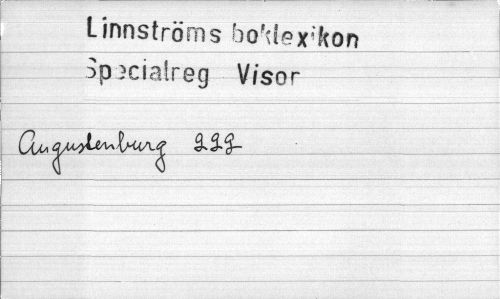 Linnströms boklexikon
Specialreg Visor
Augustenburg 222